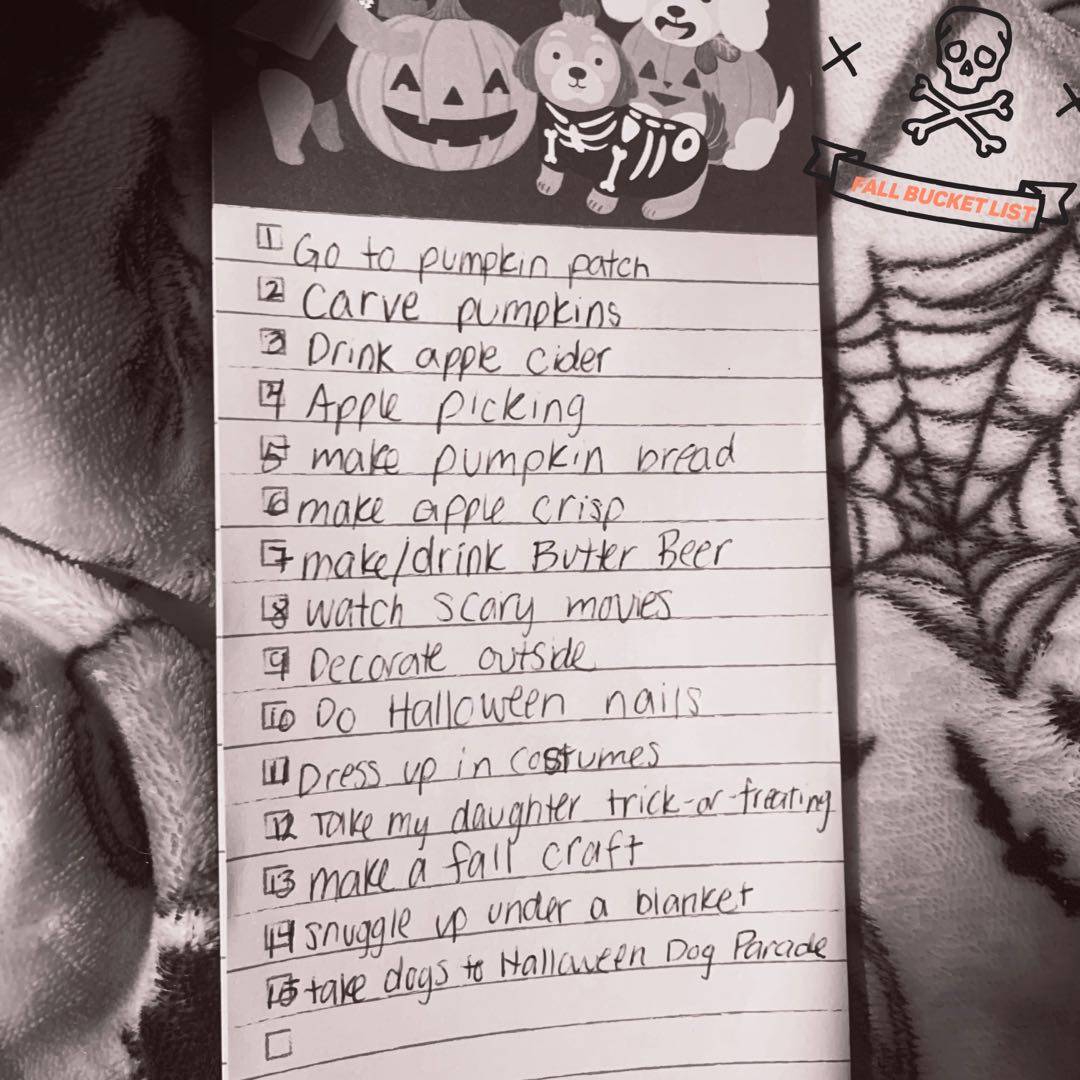 FALL BUCKET LIST
1 Go to pumpkin patch
2 Carve pumpkins
3 Drink apple cider
4 Apple picking
5 make pumpkin bread
6 make apple crisp
7 make/drink Butter Beer
8 watch scary movies
9 Decorate outside
10 Do Halloween nails
11 Dress up in costumes
12 Take my daughter trick-or-treating
13 make a fall craft
14 snuggle up under a blanket
15 take dogs to Halloween Dog Parade